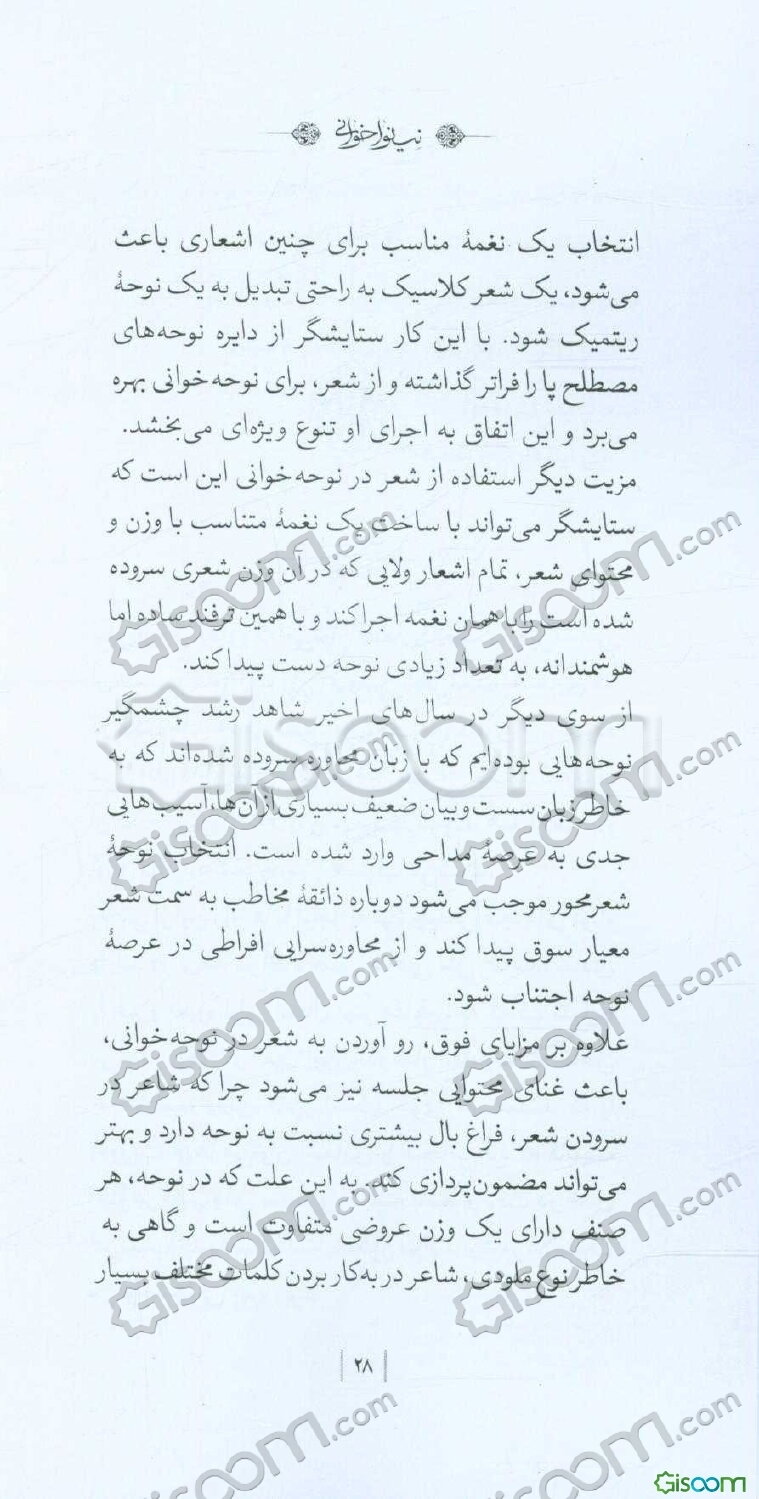 انتخاب یک نغمهٔ مناسب برای چنین اشعاری باعث
می‌شود، یک شعر کلاسیک به راحتی تبدیل به یک نوحهٔ
ریتمیک شود. با این کار ستایشگر از دایره نوحه‌های
مصطلح پا را فراتر گذاشته و از شعر، برای نوحه‌خوانی بهره
می‌برد و این اتفاق به اجرای او تنوع ویژه‌ای می‌بخشد.
مزیت دیگر استفاده از شعر در نوحه‌خوانی این است که
ستایشگر می‌تواند با ساخت یک نغمهٔ متناسب با وزن و
محتوای شعر، تمام اشعار ولایی که در آن وزن شعری سروده
شده است را با همان نغمه اجرا کند و با همین ترفند ساده اما
هوشمندانه، به تعداد زیادی نوحه دست پیدا کند.
از سوی دیگر در سال‌های اخیر شاهد رشد چشمگیر
نوحه‌هایی بوده‌ایم که با زبان محاوره سروده شده‌اند که به
خاطر زبان سست و بیان ضعیف بسیاری از آن‌ها، آسیب‌هایی
جدی به عرصهٔ مداحی وارد شده است. انتخاب نوحهٔ
شعرمحور موجب می‌شود دوباره ذائقهٔ مخاطب به سمت شعر
معیار سوق پیدا کند و از محاوره‌سرایی افراطی در عرصهٔ
نوحه اجتناب شود.
علاوه بر مزایای فوق، رو آوردن به شعر در نوحه‌خوانی،
باعث غنای محتوایی جلسه نیز می‌شود چرا که شاعر در
سرودن شعر، فراغ بال بیشتری نسبت به نوحه دارد و بهتر
می‌تواند مضمون‌پردازی کند. به این علت که در نوحه، هر
صنف دارای یک وزن عروضی متفاوت است و گاهی به
خاطر نوع ملودی، شاعر در به‌کار بردن کلمات مختلف بسیار
۲۸
Gisoom.com
Gisoom